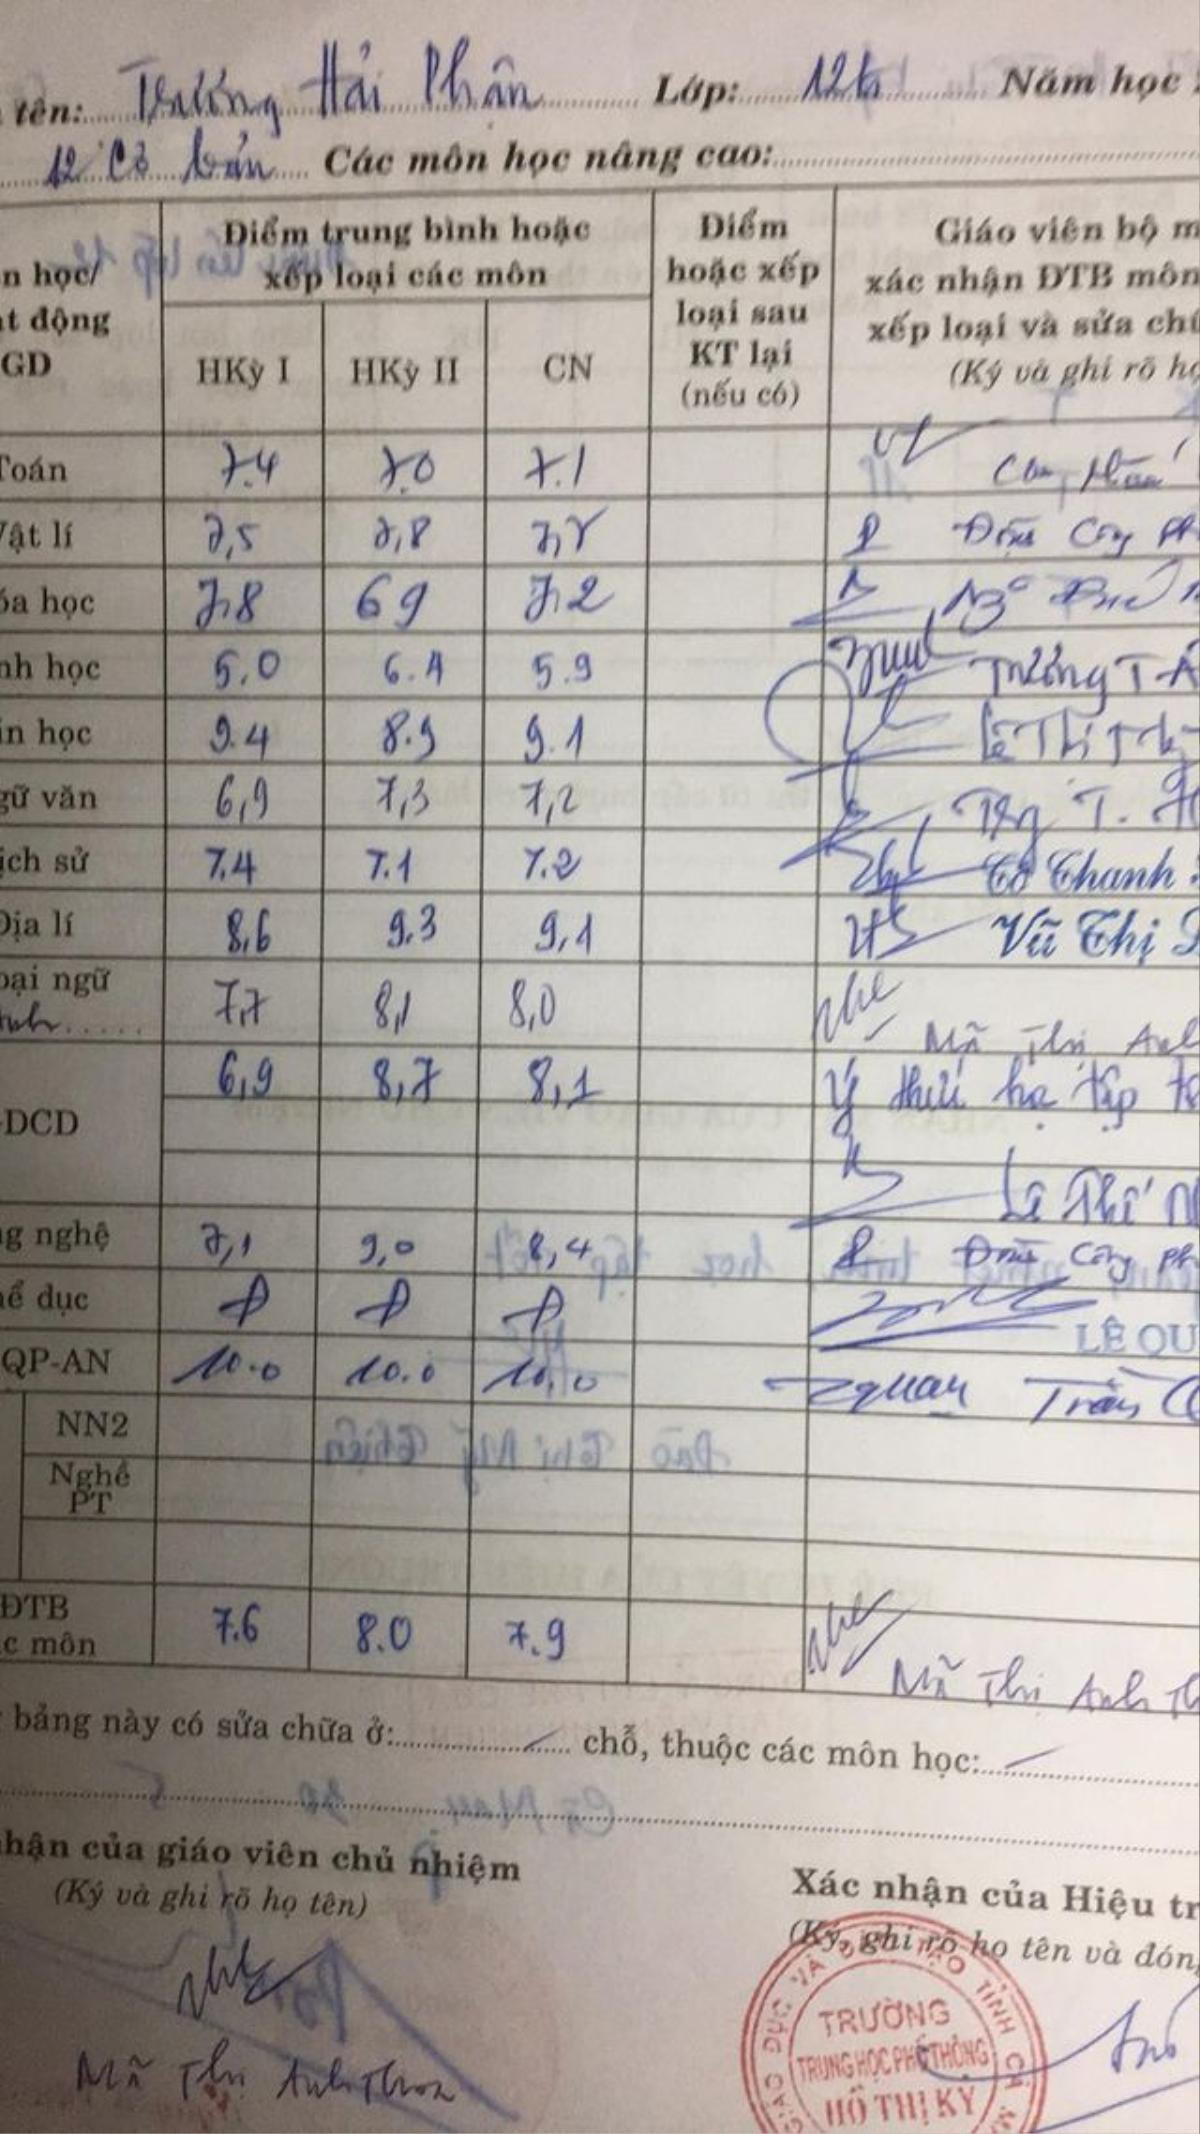 tên: Trương Hải Phận Lớp: Năm học
12 Cơ bản Các môn học nâng cao:
n học/
t động
GD
Điểm trung bình hoặc
xếp loại các môn
HKỳ I HKỳ II CN
Điểm
hoặc xếp
loại sau
KT lại
(nếu có)
Giáo viên bộ m
xác nhận ĐTB môn
xếp loại và sửa ch
(Ký và ghi rõ họ
Toán 7.4 7.0 7.1
Vật lí 7,5 7,8
óa học 7,8 6 9 7,2
nh học 5.0 6.4 5.9 Trương T
in học 9.4 8.9 9.1 Lê Thị
gữ văn 6,9 7,3 7,2
ịch sử 7.4 7.1 7.2 Cô Thanh
Địa lí 8,6 9,3 9,1 Vũ Thị
oại ngữ
Anh 7,7 8,1 8,0 Mã Thị Anh
DCD 6,9 8,7 8,1 Ý thức học tập
Lê Thế
ng nghệ 7,1 9,0 8,4 Công
ể dục Đ Đ Đ LÊ QU
QP-AN 10.0 10.0 10,0 Trần
NN2
Nghề
PT
ĐTB
c môn 7.6 8.0 7.9 Mã Thị Anh Th
bảng này có sửa chữa ở: chỗ, thuộc các môn học:
nhận của giáo viên chủ nhiệm
(Ký và ghi rõ họ tên)
Mã Thị Anh Thoa
Xác nhận của Hiệu tr
(Ký, ghi rõ họ tên và đón
TRƯỜNG
TRUNG HỌC PHỔ THÔNG
HỒ THỊ KỶ